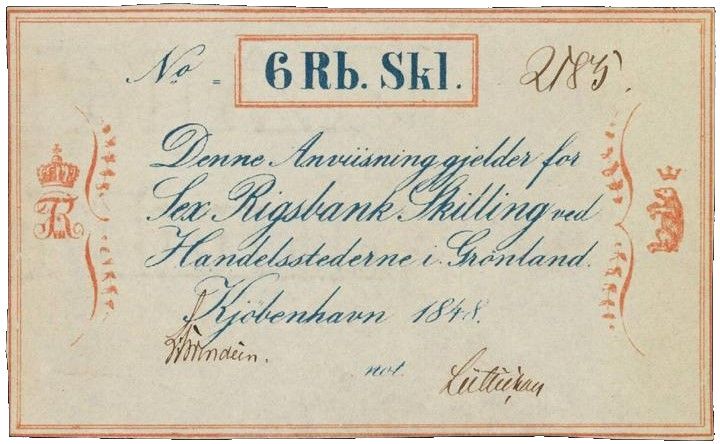 No = 6 Rb. Skl. 2185.
Denne Anviisning gjelder for
Sex Rigsbank Skilling ved
Handelsstederne i Grönland.
Kjöbenhavn 1848.
not.